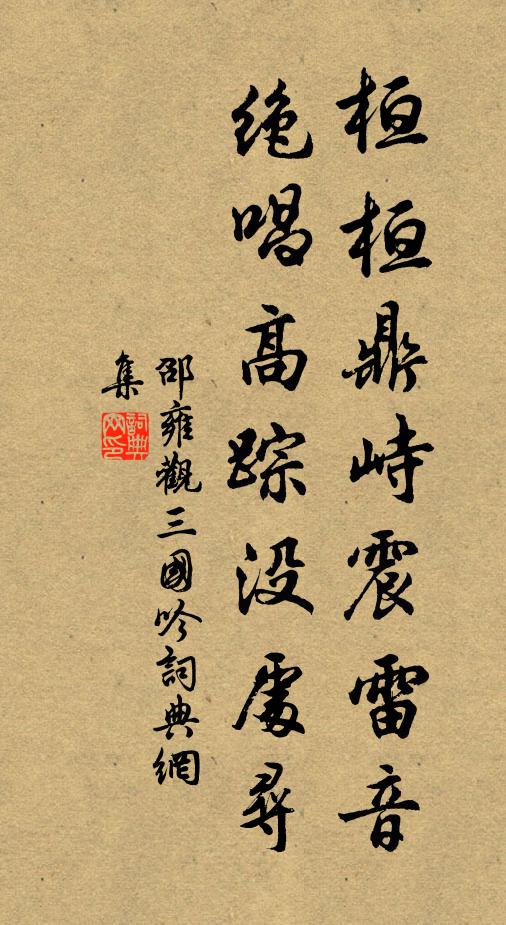 桓桓鼎峙震雷音
絶唱高踪没處尋
邵雍觀三國吟詞典網
集
詞典網印